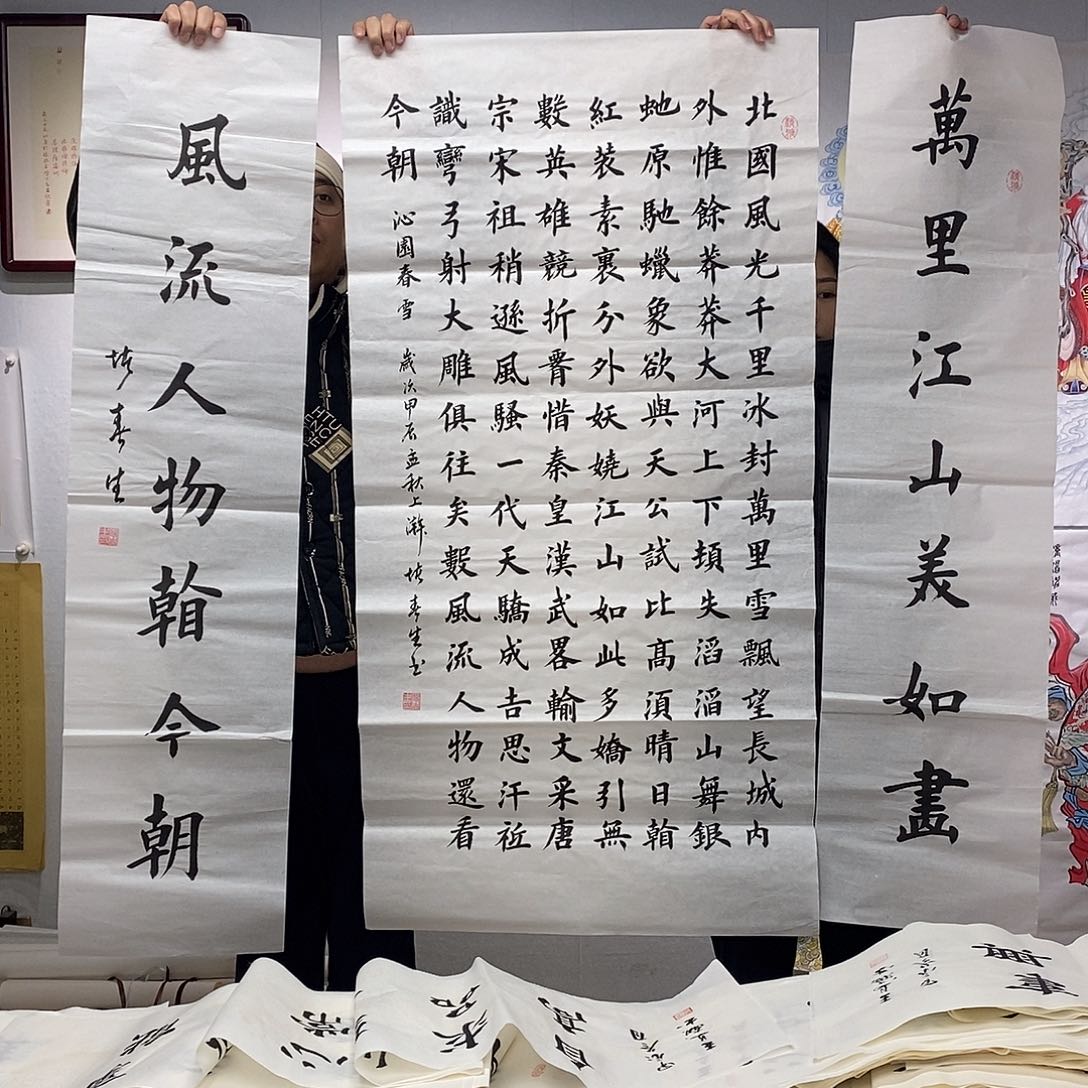 萬里江山美如畫
北國風光千里冰封萬里雪飄望長城內
外惟餘莽莽大河上下頓失滔滔山舞銀
虵原馳蠟象欲與天公試比高須晴日看
紅裝素裹分外妖嬈江山如此多嬌引無
數英雄競折腰惜秦皇漢武畧輸文采唐
宗宋祖稍遜風騷一代天驕成吉思汗祗
識彎弓射大雕俱往矣數風流人物還看
今朝 沁園春雪 歲次甲辰孟秋上澣 春生書
風流人物看今朝
春生